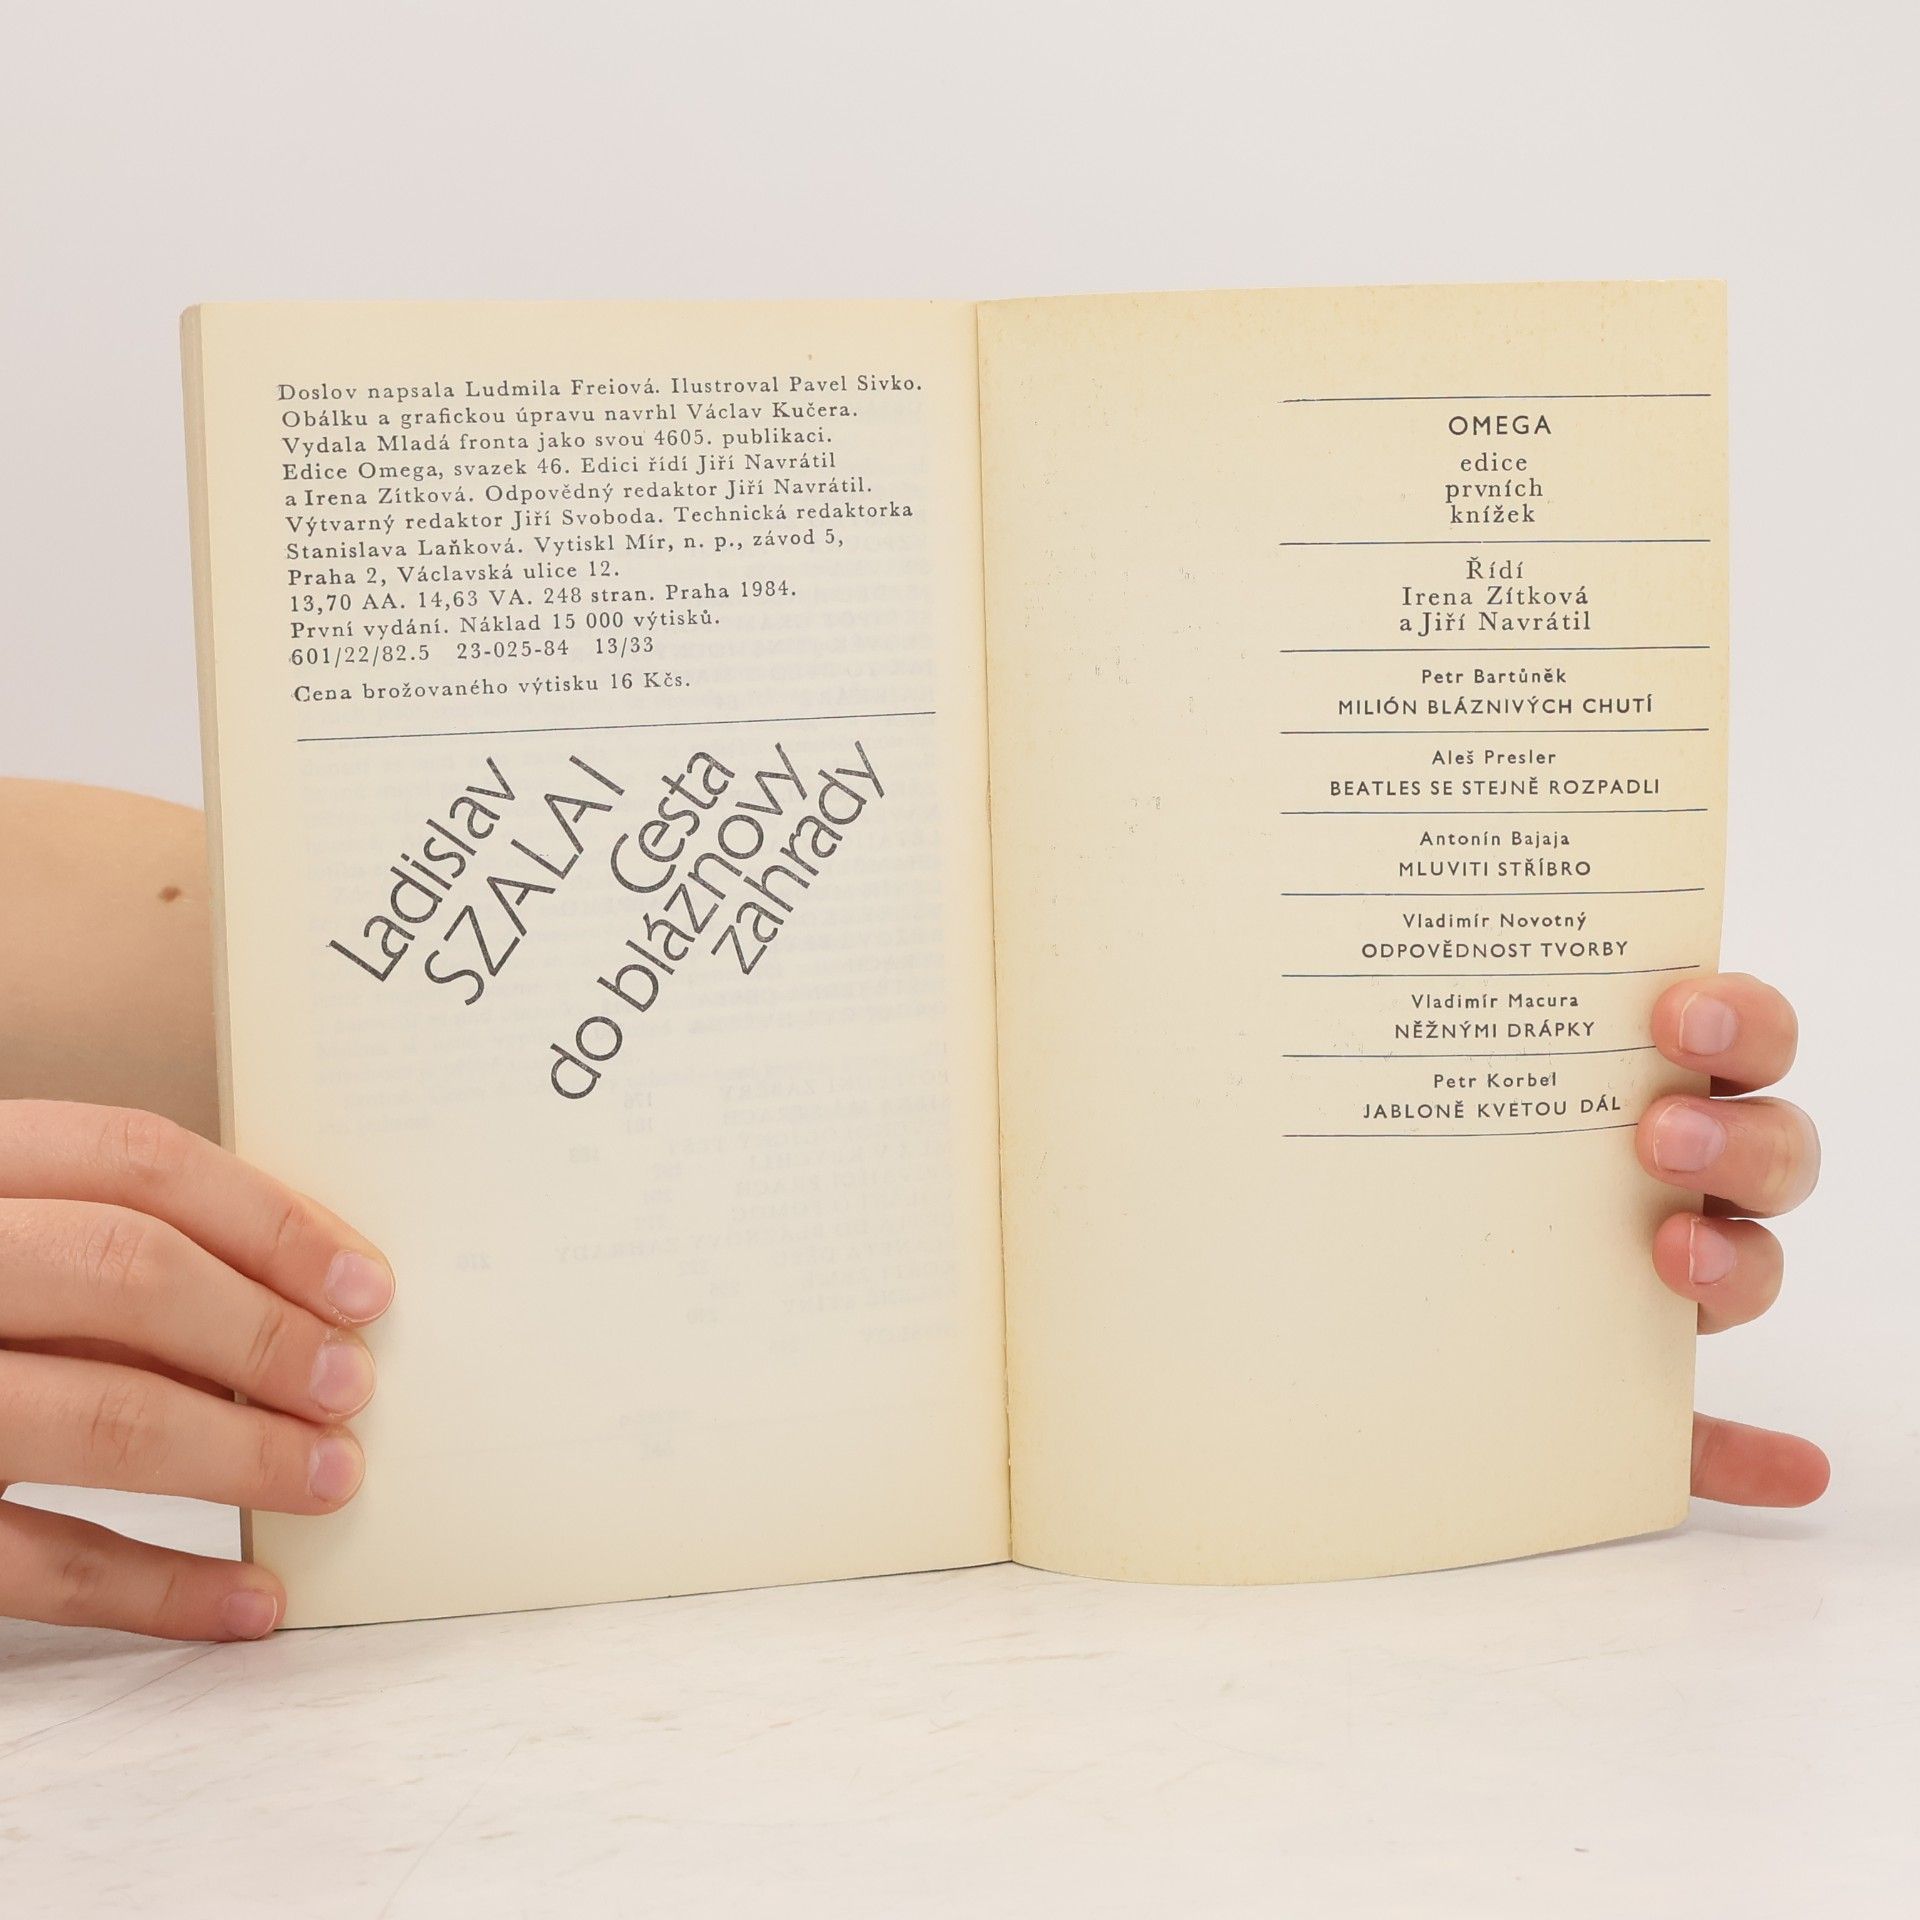 Doslov napsala Ludmila Freiová. Ilustroval Pavel Sivko.
Obálku a grafickou úpravu navrhl Václav Kučera.
Vydala Mladá fronta jako svou 4605. publikaci.
Edice Omega, svazek 46. Edici řídí Jiří Navrátil
a Irena Zítková. Odpovědný redaktor Jiří Navrátil.
Výtvarný redaktor Jiří Svoboda. Technická redaktorka
Stanislava Laňková. Vytiskl Mír, n. p., závod 5,
Praha 2, Václavská ulice 12.
13,70 AA. 14,63 VA. 248 stran. Praha 1984.
První vydání. Náklad 15 000 výtisků.
601/22/82.5 23-025-84 13/33
Cena brožovaného výtisku 16 Kčs.
Ladislav
SZALAI
Cesta
do bláznovy
zahrady
OMEGA
edice
prvních
knížek
Řídí
Irena Zítková
a Jiří Navrátil
Petr Bartůněk
MILIÓN BLÁZNIVÝCH CHUTÍ
Aleš Presler
BEATLES SE STEJNĚ ROZPADLI
Antonín Bajaja
MLUVITI STŘÍBRO
Vladimír Novotný
ODPOVĚDNOST TVORBY
Vladimír Macura
NĚŽNÝMI DRÁPKY
Petr Korbel
JABLONĚ KVETOU DÁL